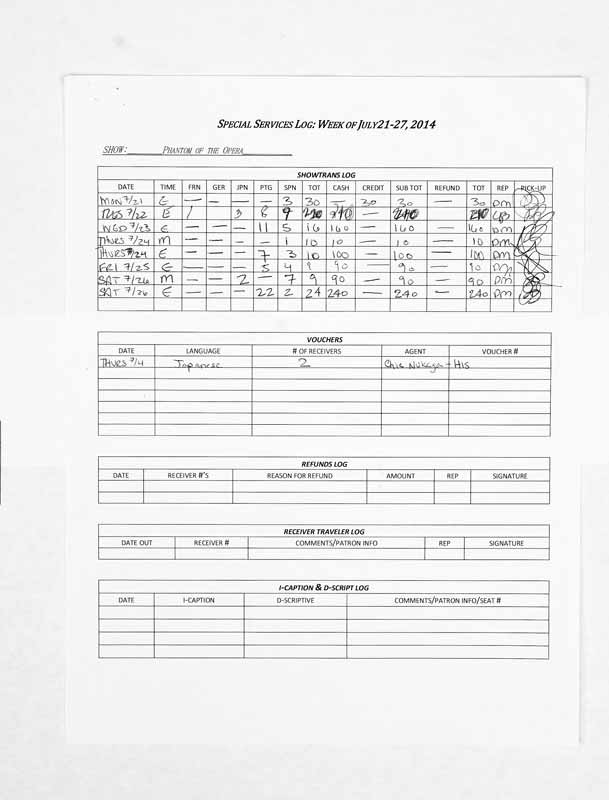 SPECIAL SERVICES LOG: WEEK OF JULY21-27, 2014
SHOW: PHANTOM OF THE OPERA
SHOWTRANS LOG
DATE TIME FRN GER JPN PTG SPN TOT CASH CREDIT SUB TOT REFUND TOT REP PICK-UP
MON 7/21 E — — — — 3 30 — 30 30 — 30 DM
TUES 7/22 E 1 3 8 9 210 240 — 240 — 210
WED 7/23 E — — — 11 5 16 160 — 160 — 160 DM
THURS 7/24 M — — — — 1 10 10 — 10 — 10 DM
THURS 7/24 E — — — 7 3 10 100 — 100 — 100 DM
FRI 7/25 E — — — 5 4 9 90 — 90 — 90 DM
SAT 7/26 M — — 2 — 7 9 90 — 90 — 90 DM
SAT 7/26 E — — — 22 2 24 240 — 240 — 240 DM
VOUCHERS
DATE LANGUAGE # OF RECEIVERS AGENT VOUCHER #
THURS 7/4 Japanese 2 Chie Nukaga - HIS
REFUNDS LOG
DATE RECEIVER #'S REASON FOR REFUND AMOUNT REP SIGNATURE
RECEIVER TRAVELER LOG
DATE OUT RECEIVER # COMMENTS/PATRON INFO REP SIGNATURE
I-CAPTION & D-SCRIPT LOG
DATE I-CAPTION D-SCRIPTIVE COMMENTS/PATRON INFO/SEAT #